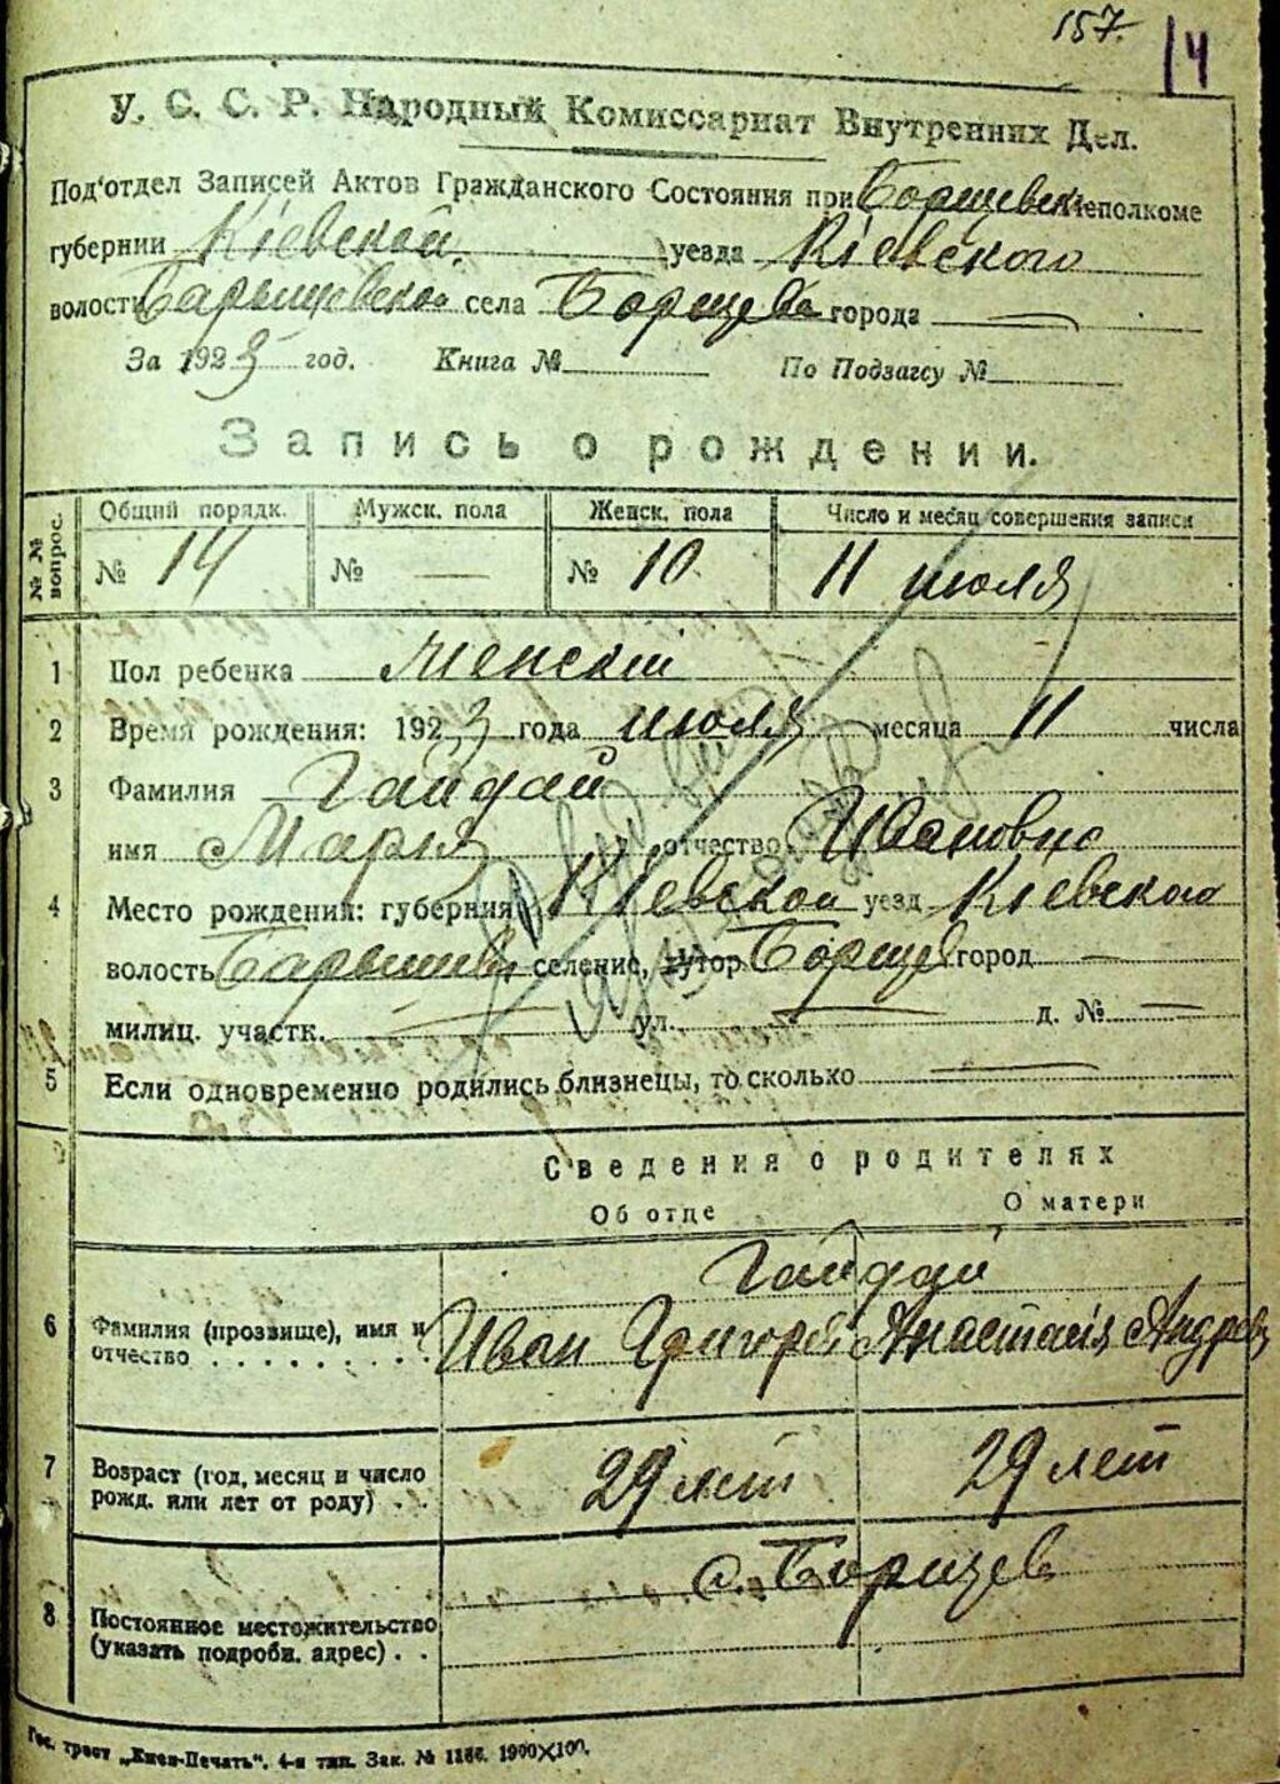 157. 14
У. С. С. Р. Народный Комиссариат Внутренних Дел.
Под'отдел Записей Актов Гражданского Состояния при Борщевск Исполкоме
губернии Кіевской. уезда Кіевского
волости Барышевской села Борщева города —
За 1923 год. Книга № По Подзагсу №
Запись о рождении.
№ № вопрос. Общий порядк. Мужск. пола Женск. пола Число и месяц совершения записи
№ 14 № — № 10 11 июля
1 Пол ребенка Женскій
2 Время рождения: 1923 года июля месяца 11 числа
3 Фамилия Гайдай
имя Мария отчество Ивановна
4 Место рождения: губерния Кіевской уезд Кіевского
волость Барышевк селение, хутор Борщев город —
милиц. участк. — ул. — д. № —
5 Если одновременно родились близнецы, то сколько —
Сведения о родителях
Об отце О матери
Гайдай
6 Фамилия (прозвище), имя и отчество . . . . . . . . . Иван Григорев Анастасія Андрев
7 Возраст (год, месяц и число рожд. или лет от роду) . . 29 лет 29 лет
с. Борщев
8 Постоянное местожительство (указать подробн. адрес) . .
Гос. трест „Киев-Печать“. 4-я тип. Зак. № 1186. 1900×100.